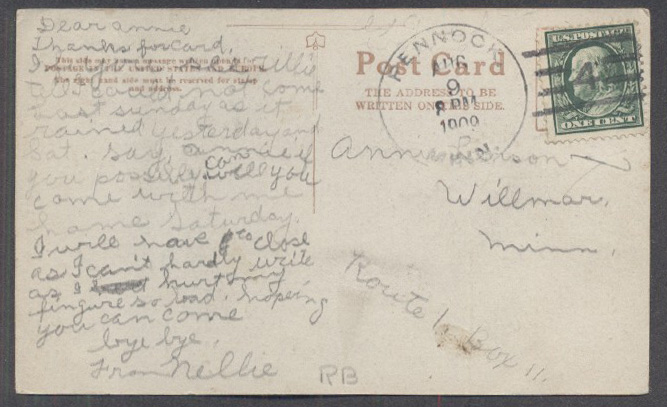 Dear annie
Thanks for card.
I
all
not come
last sunday as it
rained yesterday and
Sat. Say annie if
you possible can will you
come with me
home Saturday.
I will have to close
as I can't hardly write
as I hurt my
fingure so bad. hopeing
you can come
bye bye.
From Nellie
RB
This side may
POSTAGE IN THE UNITED STATES
side must be reserved for stamp
and address.
Post Card
THE ADDRESS TO BE
WRITTEN ON THIS SIDE.
PENNOCK
AUG
9
8 PM
1909
MINN.
U.S. POSTAGE
4
ONE CENT
Anna
Willmar,
Minn.
Route 1, box 11.